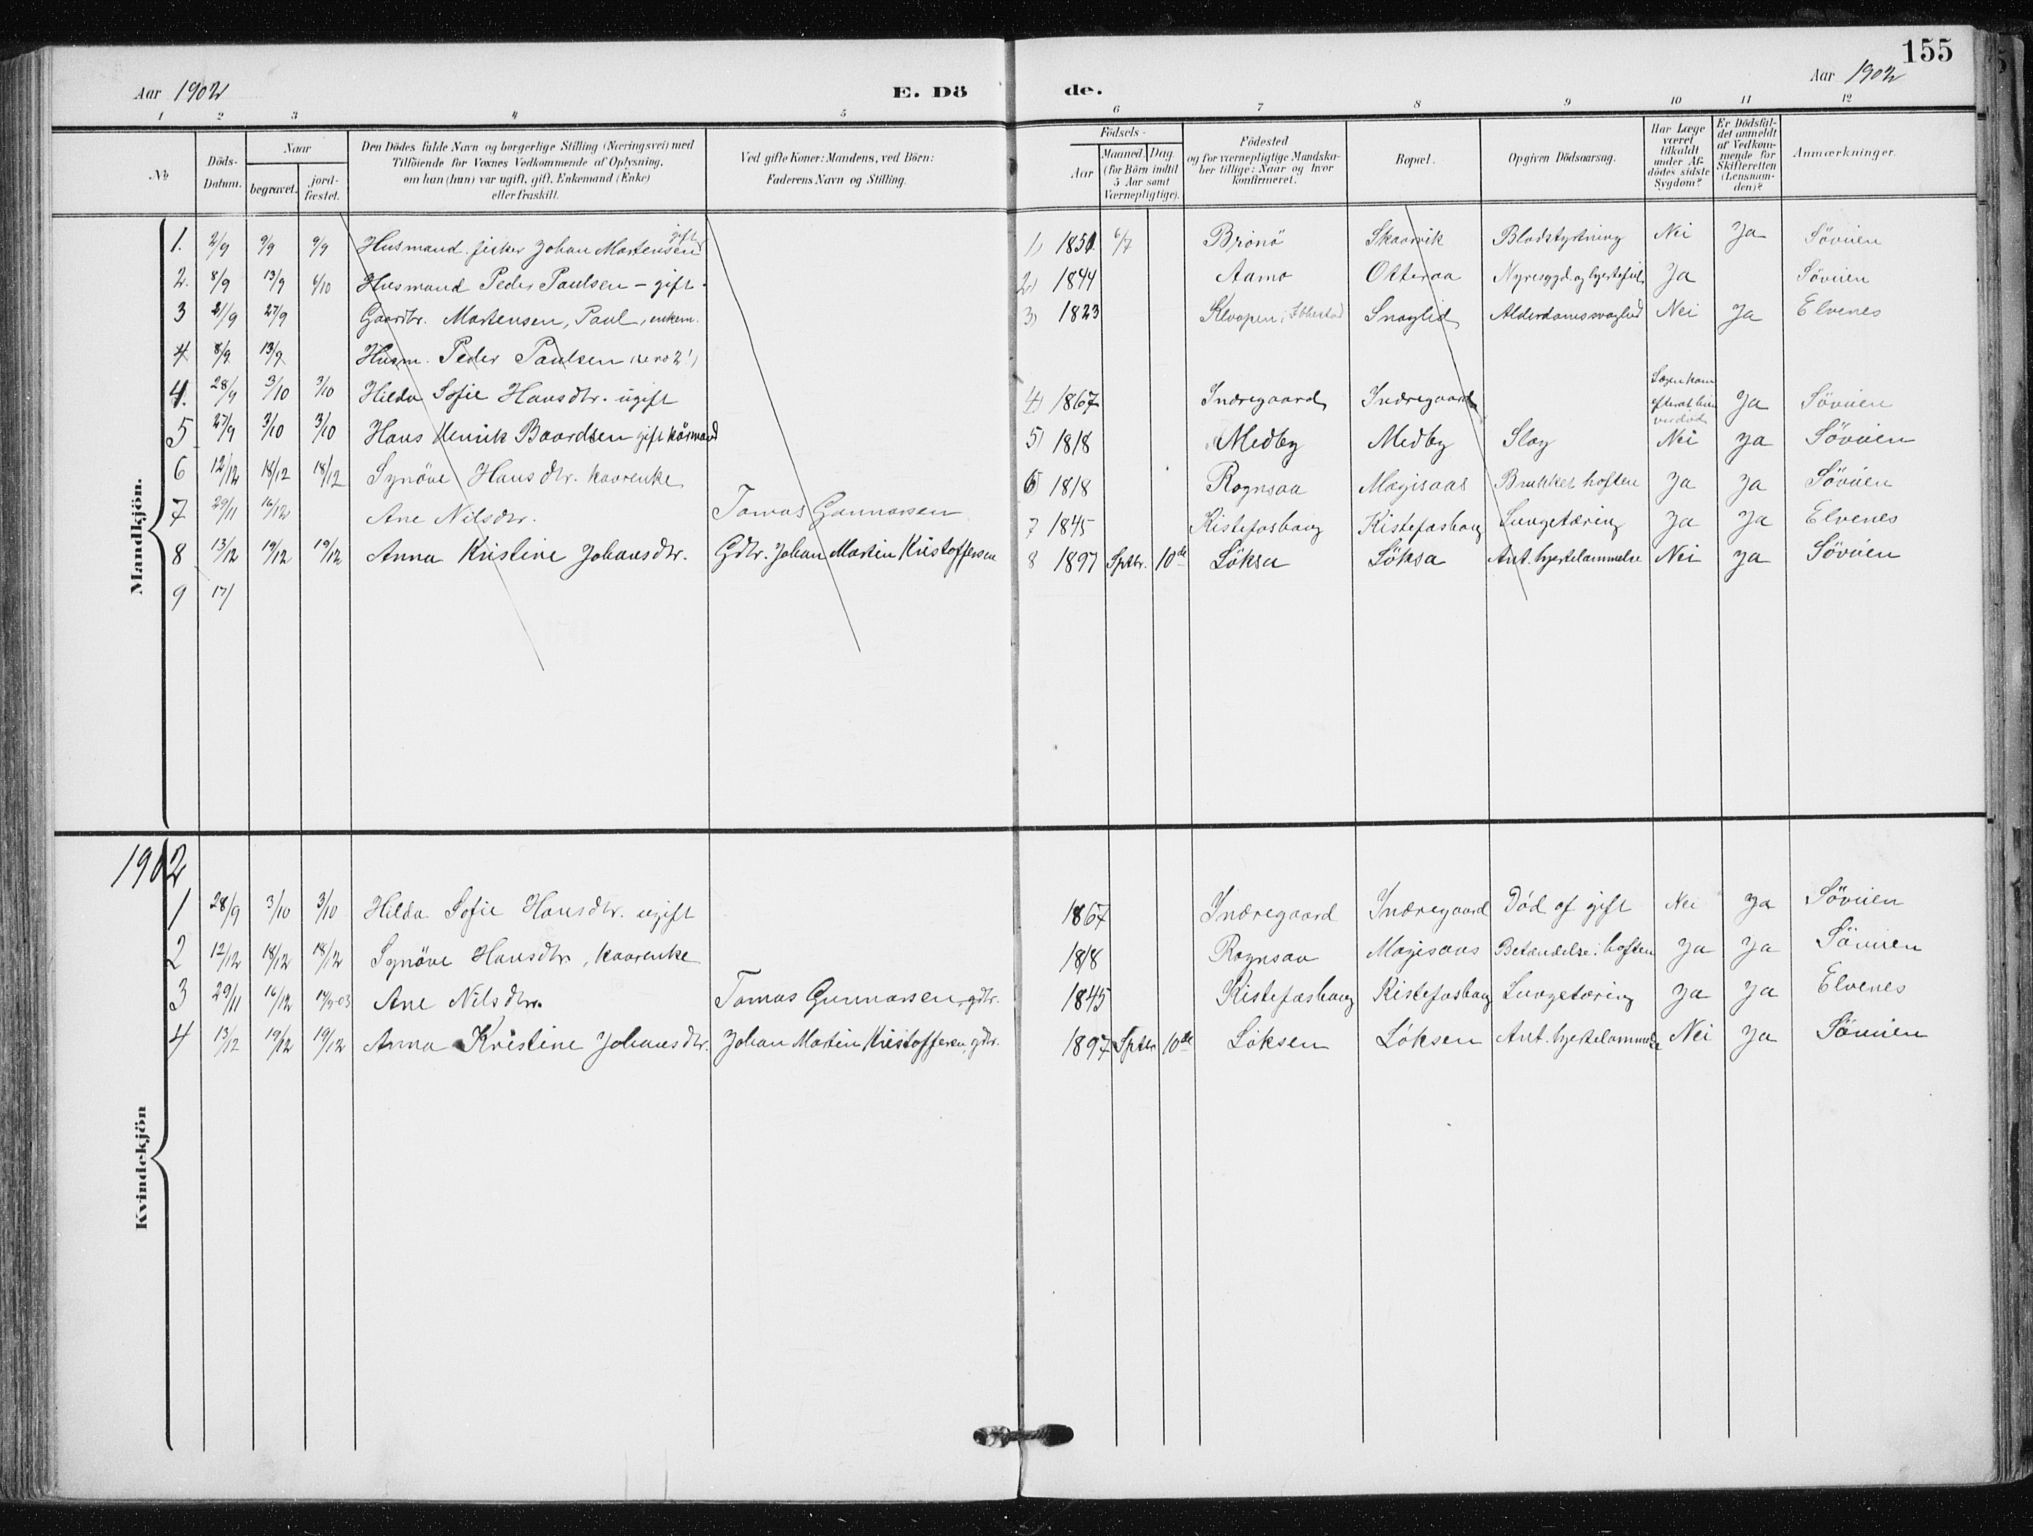 155
Aar 1902 E. Dö de. Aar 1902
1 2 3 4 5 6 7 8 9 10 11 12
№ Döds-Datum. Naar begravet. jord-fæstet. Den Dödes fulde Navn og borgerlige Stilling (Næringsvei) med Tilföiende for Voxnes Vedkommende af Oplysning, om han (hun) var ugift, gift, Enkemand (Enke) eller fraskilt. Ved gifte Koner: Mandens, ved Börn: Faderens Navn og Stilling. Födsels- Aar Maaned. Dag. (for Börn indtil 5 Aar samt Værnepligtige). Födested og for værnepligtige Mandskaber tillige: Naar og hvor konfirmeret. Bopæl. Opgiven Dödsaarsag. Har Læge været tilkaldt under Afdödes sidste Sygdom? Er Dödsfaldet anmeldt af Vedkommende for Skifteretten (Lensmanden)? Anmærkninger.
Mandkjön.
1. 2/9 9/9 9/9 Husmand, fisker Johan Martensen gift 1) 1851 6/7 Brönö Skaarvik Blodstyrtning Nei Ja Sövien
2. 8/9 13/9 6/10 Husmand Peder Paulsen - gift. 2) 1844 Aamo Otteraa Nyresygd. og hjertefeil Ja Sövien
3 21/9 27/9 Gaardbr. Martensen, Paul, enkem. 3) 1823 Kloopen, Ibbestad Snoglid Alderdomssvaghed Nei Ja Elvenes
4 8/9 13/9 Husm. Peder Paulsen (se no 2!)
4. 28/9 3/10 3/10 Hilda Sofie Hansdtr. ugift 4) 1867 Indregaard Indregaard Lægen kom efterat hun var död Ja Sövien
5 27/9 3/10 3/10 Hans Henrik Baardsen gift kårmand 5) 1818 Medby Medby Slag Nei Ja Sövien
6 12/12 18/12 18/12 Synöve Hansdtr. kaarenke 6 1818 Rognsaa Magisaas Brukket hoften Ja Ja Sövien
7 29/11 16/12 Ane Nilsdtr. Tomas Gunnarsen 7 1845 Kistefosbaug Kistefosbaug Lungetæring Ja Ja Elvenes
8 13/12 19/12 19/12 Anna Kristine Johansdtr. Gdbr. Johan Martin Kristoffersen 8 1897 Sptbr. 10de Löksa Löksa Ant. hjertelammelse Nei Ja Sövien
9 17/
1902
Kvindekjön
1 28/9 3/10 3/10 Hilda Sofie Hansdtr. ugift 1867 Indregaard Indregaard Död af gift Nei Ja Sövien
2 12/12 18/12 18/12 Synöve Hansdtr, kaarenke 1818 Rognsaa Magisaas Betændelse i hoften Ja Ja Sövien
3 29/11 16/12 Ane Nilsdtr. Tomas Gunnarsen, gdbr. 1845 Kistefosbaug Kistefosbaug Lungetæring Ja Ja Elvenes
4 13/12 19/12 19/12 Anna Kristine Johansdtr. Johan Martin Kristoffersen, gdbr. 1897 Sptbr 10de Löksen Löksen Ant. hjertelammelse Nei Ja Sövien